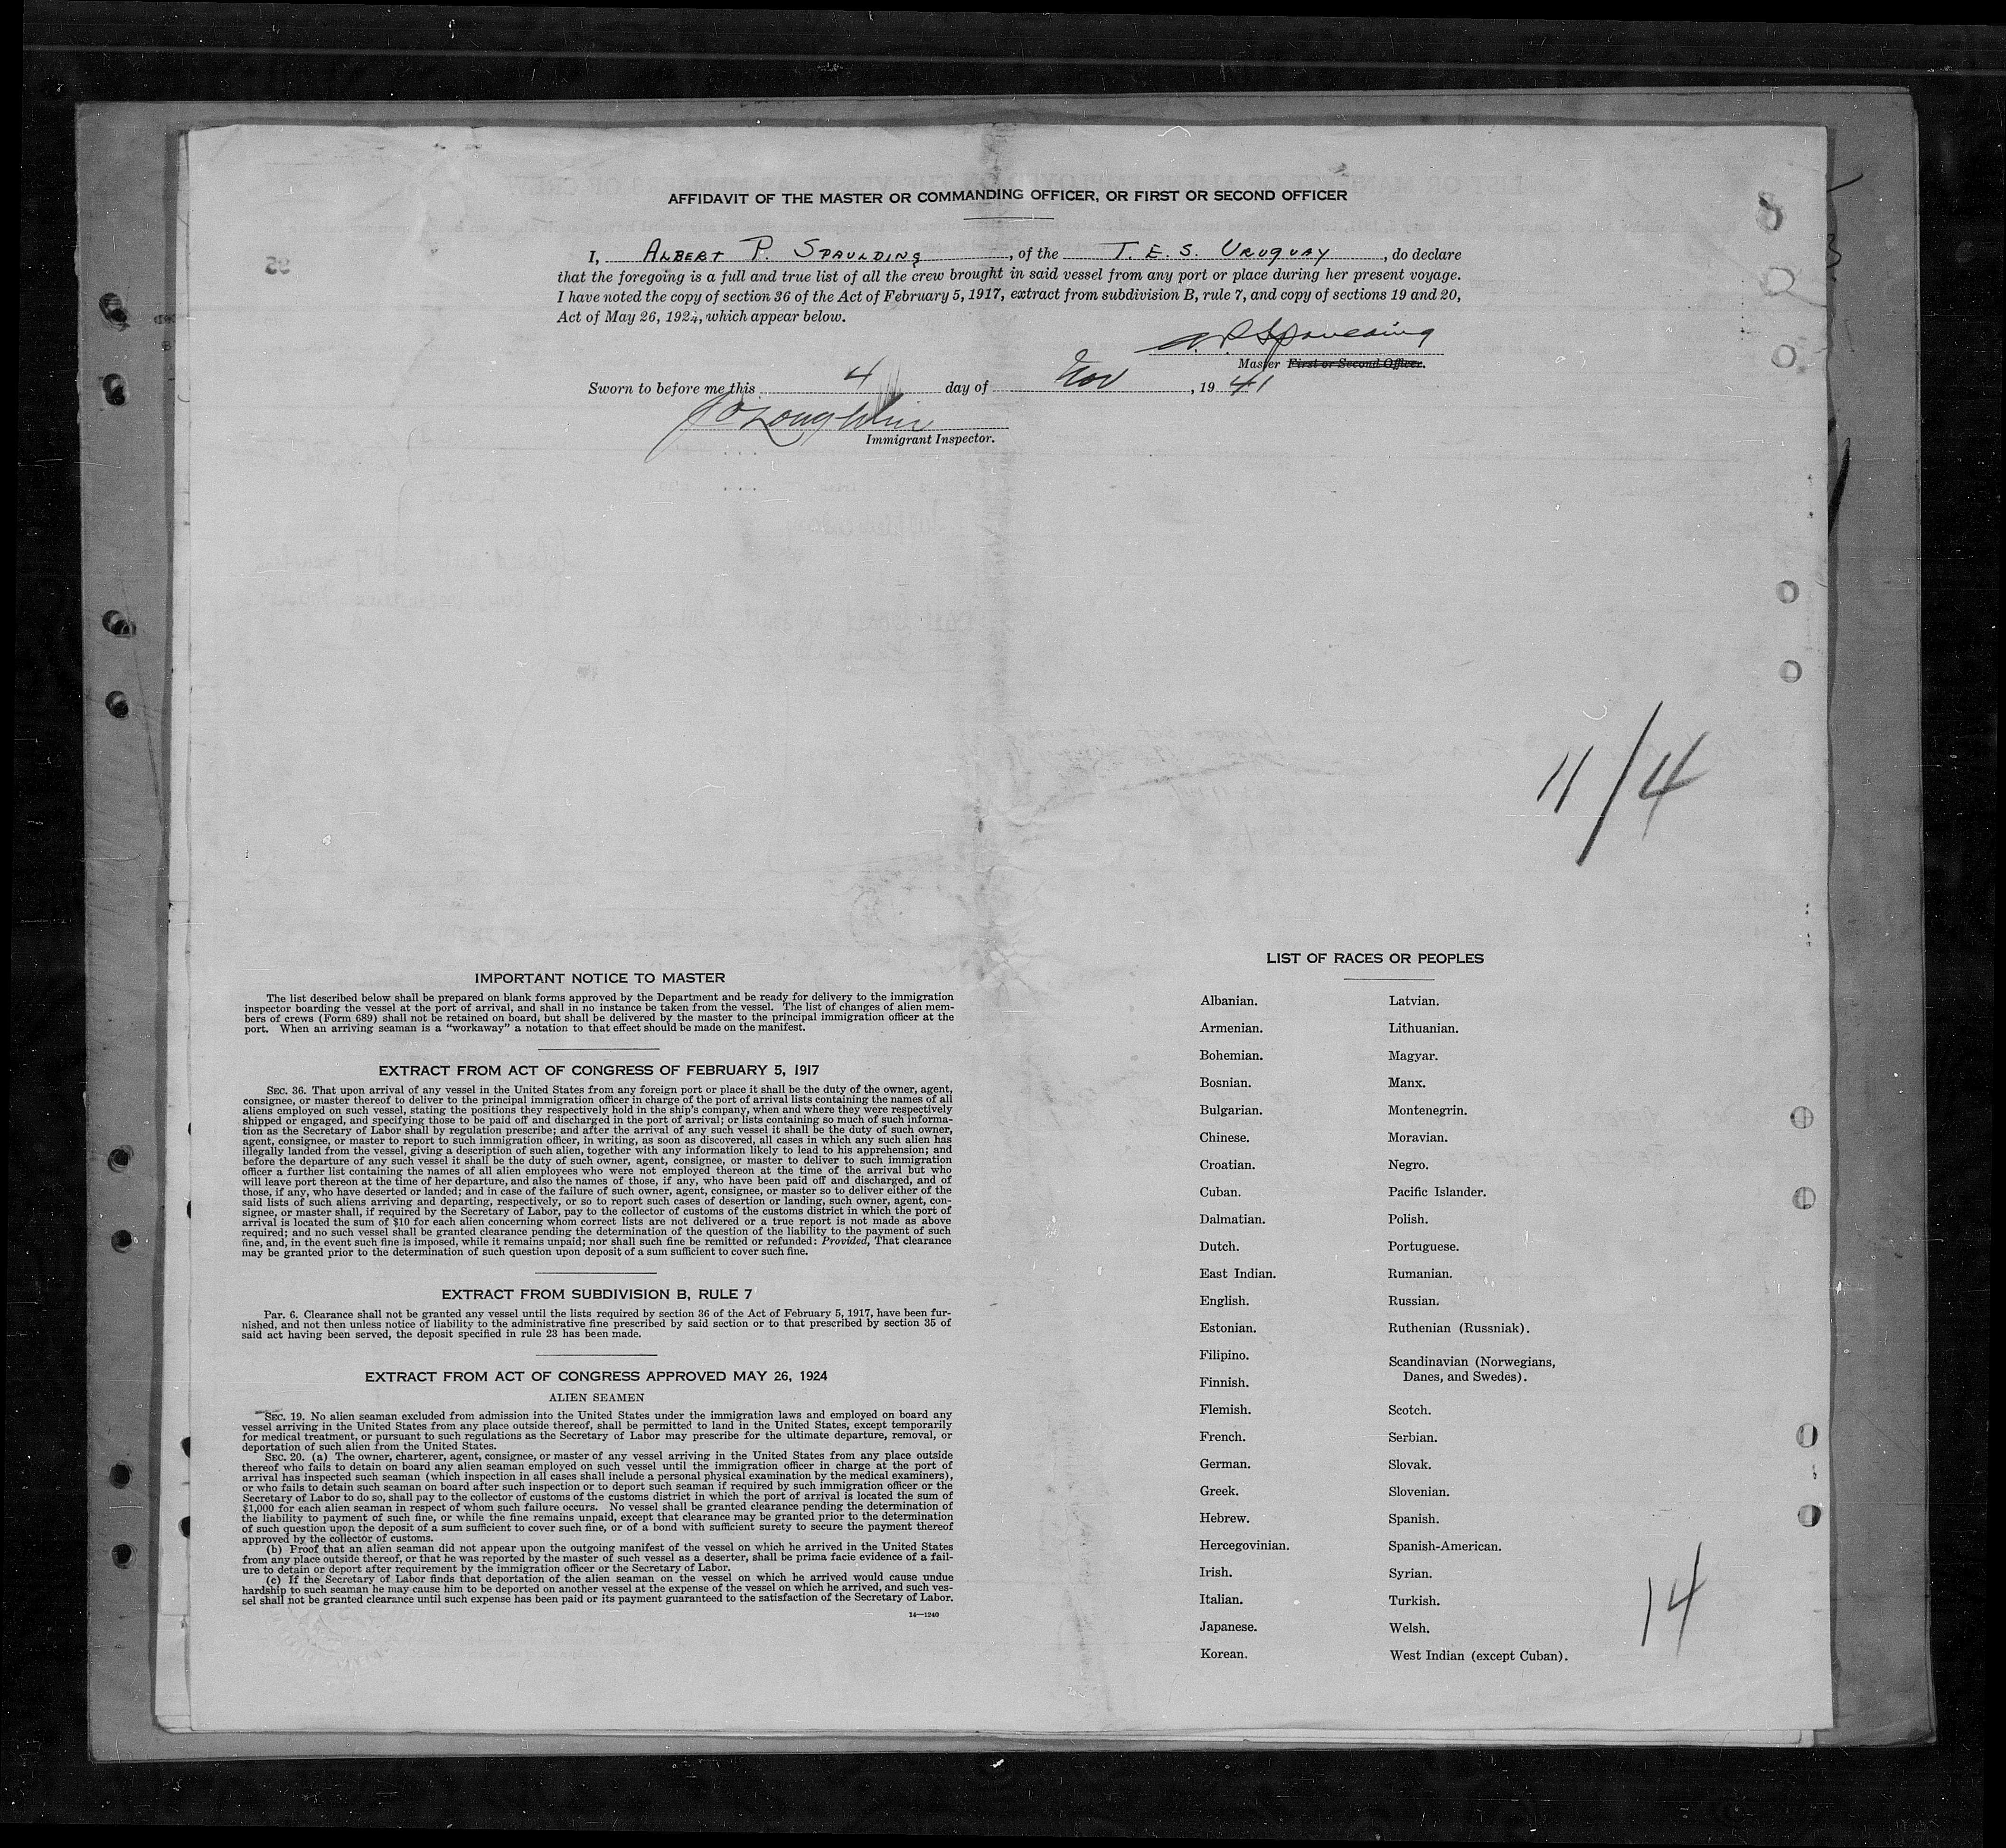 AFFIDAVIT OF THE MASTER OR COMMANDING OFFICER, OR FIRST OR SECOND OFFICER
I, ALBERT P. SPAULDING, of the T. E. S. URUGUAY, do declare
that the foregoing is a full and true list of all the crew brought in said vessel from any port or place during her present voyage.
I have noted the copy of section 36 of the Act of February 5, 1917, extract from subdivision B, rule 7, and copy of sections 19 and 20,
Act of May 26, 1924, which appear below.
A. P. Spaulding
Master First or Second Officer.
Sworn to before me this 4 day of Nov, 1941
Immigrant Inspector.
11/4
IMPORTANT NOTICE TO MASTER
The list described below shall be prepared on blank forms approved by the Department and be ready for delivery to the immigration
inspector boarding the vessel at the port of arrival, and shall in no instance be taken from the vessel. The list of changes of alien mem-
bers of crews (Form 689) shall not be retained on board, but shall be delivered by the master to the principal immigration officer at the
port. When an arriving seaman is a "workaway" a notation to that effect should be made on the manifest.
EXTRACT FROM ACT OF CONGRESS OF FEBRUARY 5, 1917
SEC. 36. That upon arrival of any vessel in the United States from any foreign port or place it shall be the duty of the owner, agent,
consignee, or master thereof to deliver to the principal immigration officer in charge of the port of arrival lists containing the names of all
aliens employed on such vessel, stating the positions they respectively hold in the ship's company, when and where they were respectively
shipped or engaged, and specifying those to be paid off and discharged in the port of arrival; or lists containing so much of such informa-
tion as the Secretary of Labor shall by regulation prescribe; and after the arrival of any such vessel it shall be the duty of such owner,
agent, consignee, or master to report to such immigration officer, in writing, as soon as discovered, all cases in which any such alien has
illegally landed from the vessel, giving a description of such alien, together with any information likely to lead to his apprehension; and
before the departure of any such vessel it shall be the duty of such owner, agent, consignee, or master to deliver to such immigration
officer a further list containing the names of all alien employees who were not employed thereon at the time of the arrival but who
will leave port thereon at the time of her departure, and also the names of those, if any, who have been paid off and discharged, and of
those, if any, who have deserted or landed; and in case of the failure of such owner, agent, consignee, or master so to deliver either of the
said lists of such aliens arriving and departing, respectively, or so to report such cases of desertion or landing, such owner, agent, con-
signee, or master shall, if required by the Secretary of Labor, pay to the collector of customs of the customs district in which the port of
arrival is located the sum of $10 for each alien concerning whom correct lists are not delivered or a true report is not made as above
required; and no such vessel shall be granted clearance pending the determination of the question of the liability to the payment of such
fine, and, in the event such fine is imposed, while it remains unpaid; nor shall such fine be remitted or refunded: Provided, That clearance
may be granted prior to the determination of such question upon deposit of a sum sufficient to cover such fine.
EXTRACT FROM SUBDIVISION B, RULE 7
Par. 6. Clearance shall not be granted any vessel until the lists required by section 36 of the Act of February 5, 1917, have been fur-
nished, and not then unless notice of liability to the administrative fine prescribed by said section or to that prescribed by section 35 of
said act having been served, the deposit specified in rule 23 has been made.
EXTRACT FROM ACT OF CONGRESS APPROVED MAY 26, 1924
ALIEN SEAMEN
SEC. 19. No alien seaman excluded from admission into the United States under the immigration laws and employed on board any
vessel arriving in the United States from any place outside thereof, shall be permitted to land in the United States, except temporarily
for medical treatment, or pursuant to such regulations as the Secretary of Labor may prescribe for the ultimate departure, removal, or
deportation of such alien from the United States.
SEC. 20. (a) The owner, charterer, agent, consignee, or master of any vessel arriving in the United States from any place outside
thereof who fails to detain on board any alien seaman employed on such vessel until the immigration officer in charge at the port of
arrival has inspected such seaman (which inspection in all cases shall include a personal physical examination by the medical examiners),
or who fails to detain such seaman on board after such inspection or to deport such seaman if required by such immigration officer or the
Secretary of Labor to do so, shall pay to the collector of customs of the customs district in which the port of arrival is located the sum of
$1,000 for each alien seaman in respect of whom such failure occurs. No vessel shall be granted clearance pending the determination of
the liability to payment of such fine, or while the fine remains unpaid, except that clearance may be granted prior to the determination
of such question upon the deposit of a sum sufficient to cover such fine, or of a bond with sufficient surety to secure the payment thereof
approved by the collector of customs.
(b) Proof that an alien seaman did not appear upon the outgoing manifest of the vessel on which he arrived in the United States
from any place outside thereof, or that he was reported by the master of such vessel as a deserter, shall be prima facie evidence of a fail-
ure to detain or deport after requirement by the immigration officer or the Secretary of Labor.
(c) If the Secretary of Labor finds that deportation of the alien seaman on the vessel on which he arrived would cause undue
hardship to such seaman he may cause him to be deported on another vessel at the expense of the vessel on which he arrived, and such ves-
sel shall not be granted clearance until such expense has been paid or its payment guaranteed to the satisfaction of the Secretary of Labor.
14—1240
LIST OF RACES OR PEOPLES
Albanian.
Armenian.
Bohemian.
Bosnian.
Bulgarian.
Chinese.
Croatian.
Cuban.
Dalmatian.
Dutch.
East Indian.
English.
Estonian.
Filipino.
Finnish.
Flemish.
French.
German.
Greek.
Hebrew.
Hercegovinian.
Irish.
Italian.
Japanese.
Korean.
Latvian.
Lithuanian.
Magyar.
Manx.
Montenegrin.
Moravian.
Negro.
Pacific Islander.
Polish.
Portuguese.
Rumanian.
Russian.
Ruthenian (Russniak).
Scandinavian (Norwegians,
Danes, and Swedes).
Scotch.
Serbian.
Slovak.
Slovenian.
Spanish.
Spanish-American.
Syrian.
Turkish.
Welsh.
West Indian (except Cuban).
14